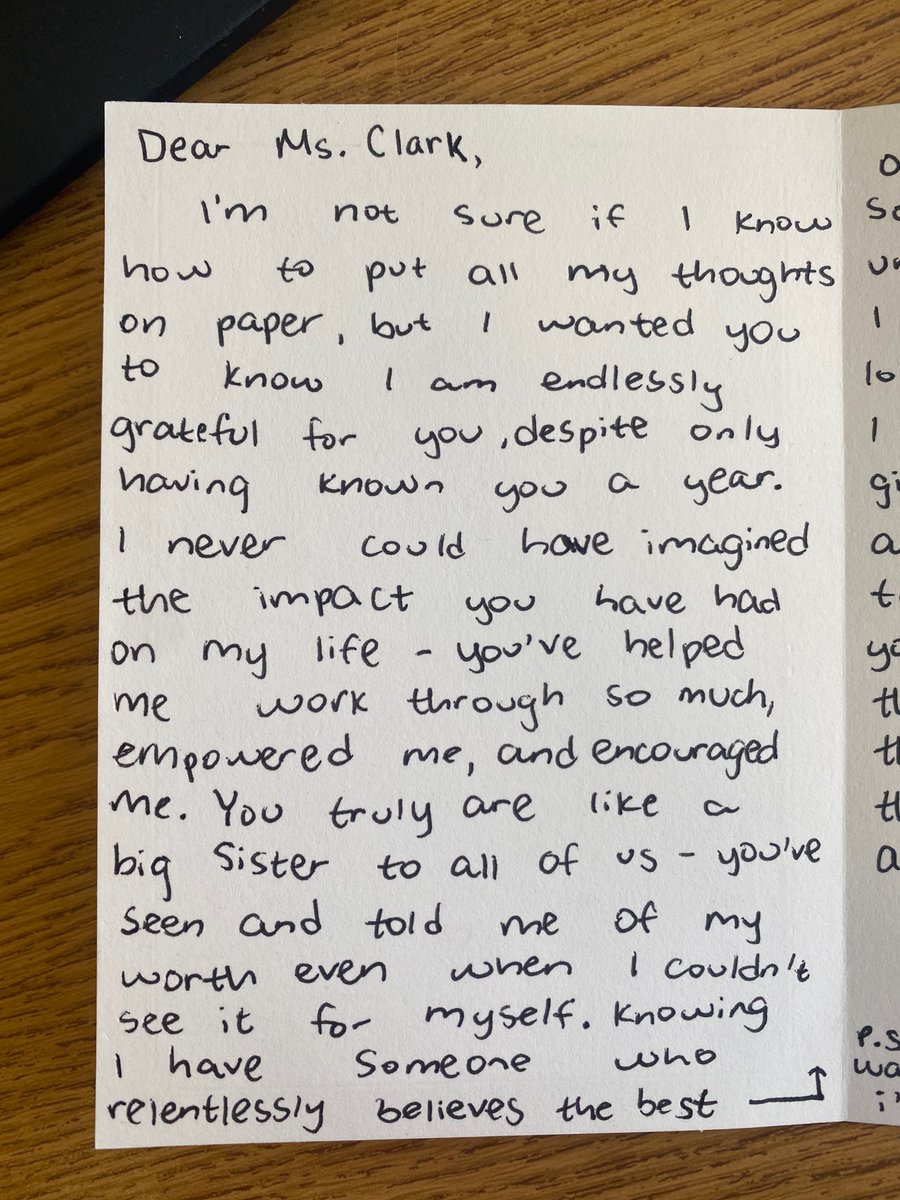 Dear Ms. Clark,
I'm not sure if I know
how to put all my thoughts
on paper, but I wanted you
to know I am endlessly
grateful for you, despite only
having known you a year.
I never could have imagined
the impact you have had
on my life - you've helped
me work through so much,
empowered me, and encouraged
me. You truly are like a
big sister to all of us - you've
seen and told me of my
worth even when I couldn't
see it for myself. Knowing
I have someone who
relentlessly believes the best